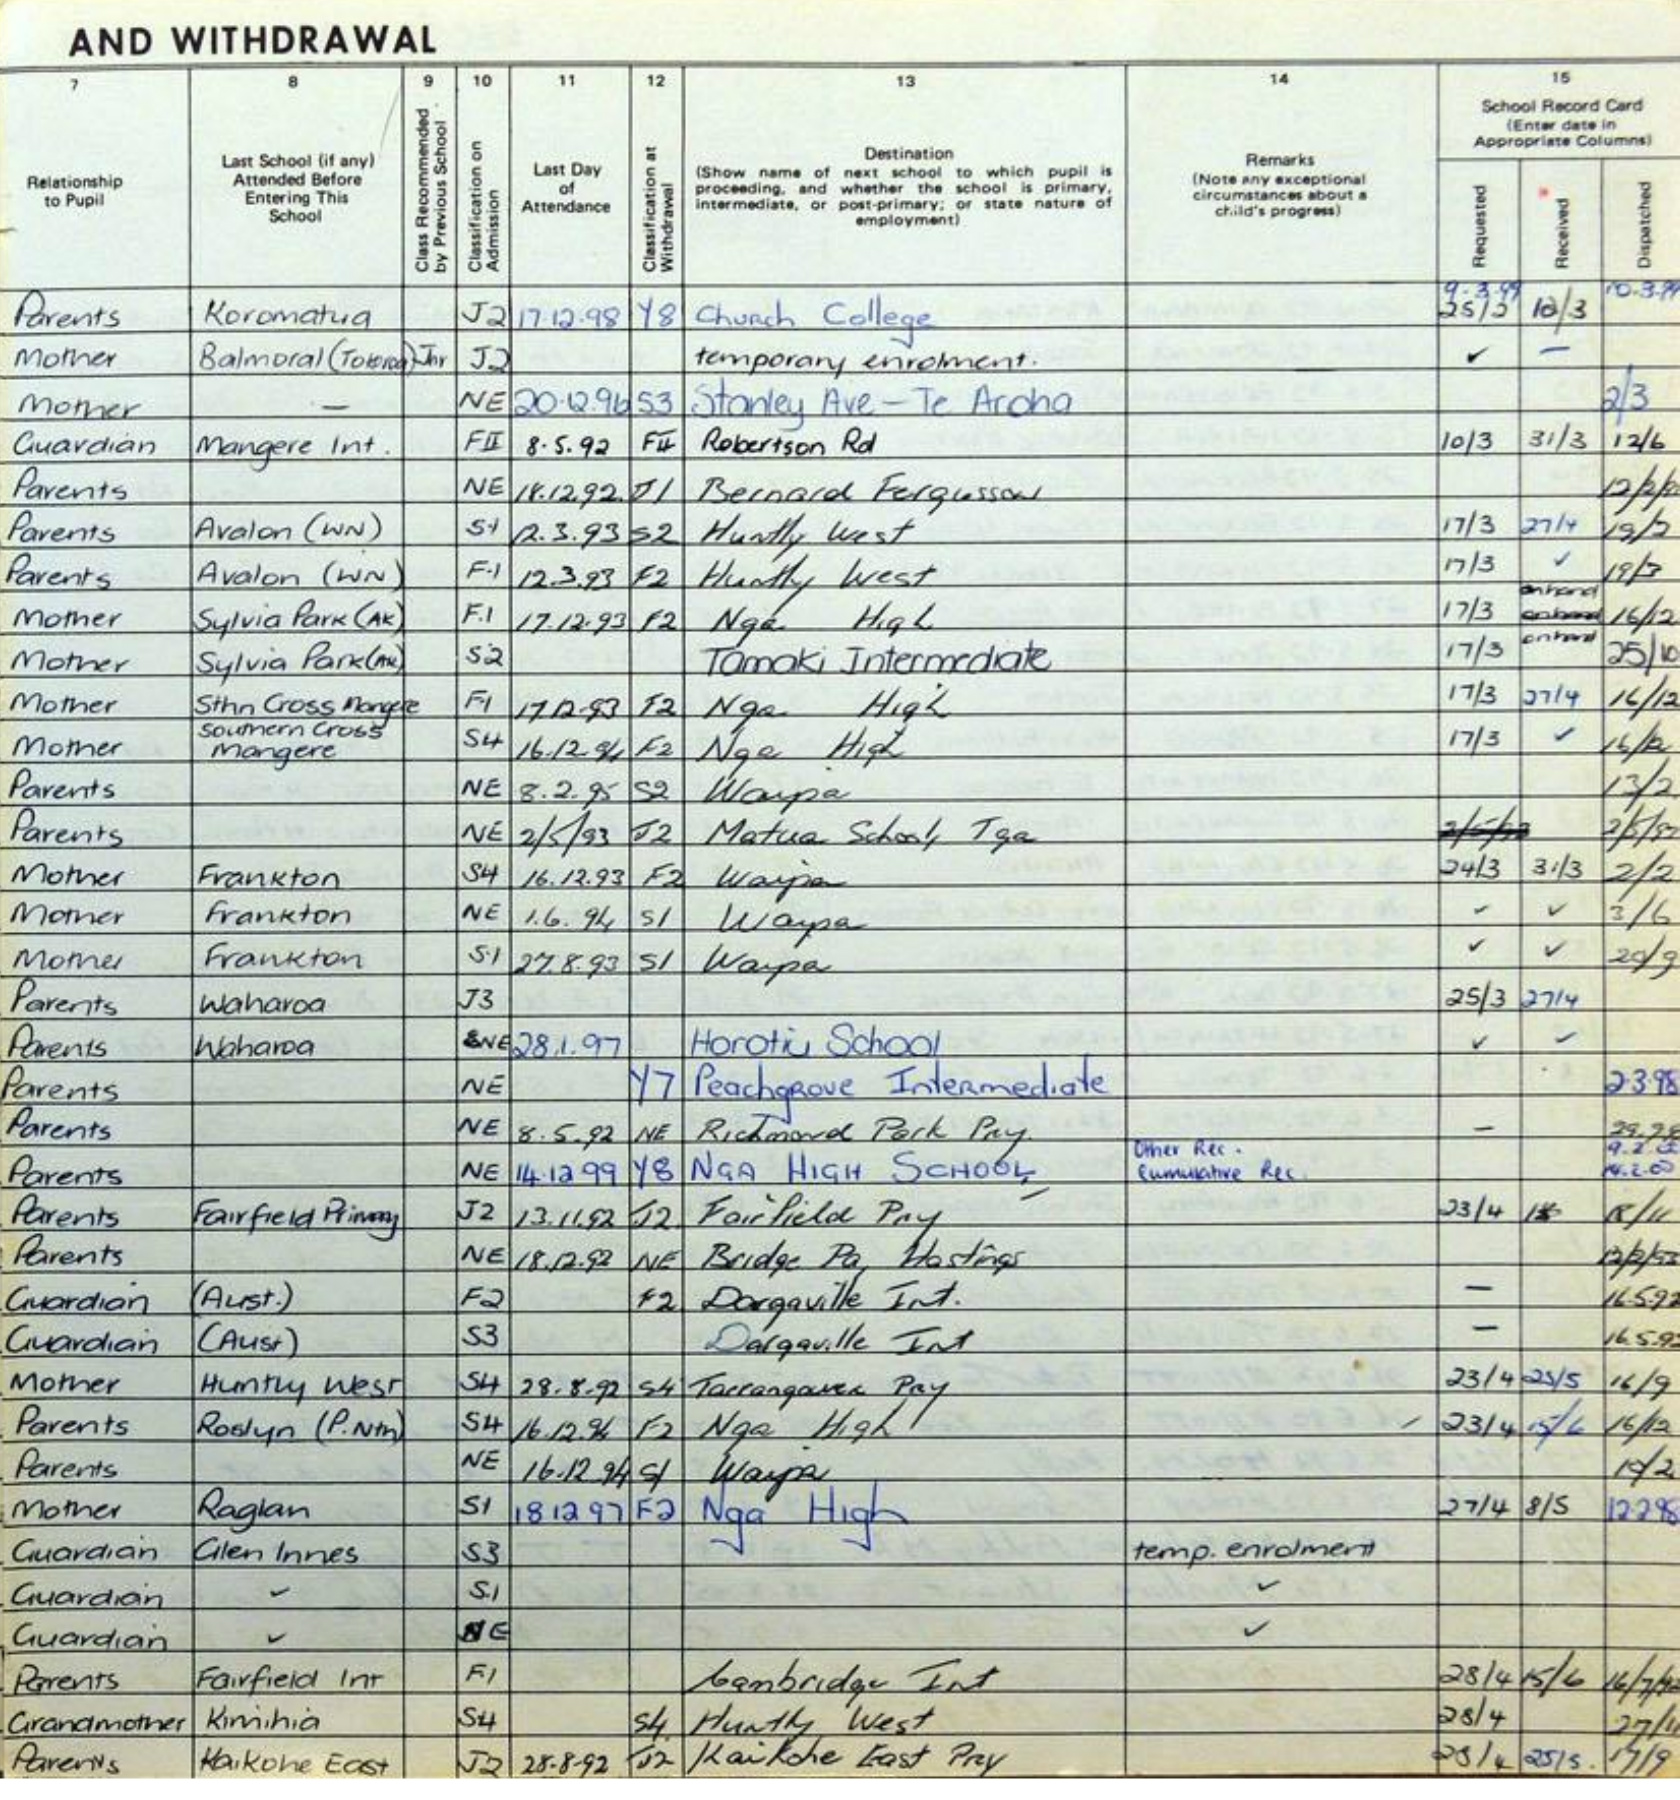 AND WITHDRAWAL
7 8 9 10 11 12 13 14 15
Relationship to Pupil
Last School (if any) Attended Before Entering This School
Class Recommended by Previous School
Classification on Admission
Last Day of Attendance
Classification at Withdrawal
Destination
(Show name of next school to which pupil is proceeding, and whether the school is primary, intermediate, or post-primary; or state nature of employment)
Remarks
(Note any exceptional circumstances about a child's progress)
School Record Card
(Enter date in Appropriate Columns)
Requested Received Dispatched
9.3.99 10.3.99
Parents Koromatua J2 17.12.98 Y8 Church College 25/3 10/3
Mother Balmoral Jnr J2 temporary enrolment. ✓ —
Mother — NE 20.12.96 S3 Stanley Ave - Te Aroha 2/3
Guardian Mangere Int. FII 8.5.92 FII Robertson Rd 10/3 31/3 12/6
Parents NE 18.12.92 J1 Bernard Fergusson
Parents Avalon (WN) S1 12.3.93 S2 Huntly West 17/3 27/4
Parents Avalon (WN) F.1 12.3.93 F2 Huntly West 17/3 ✓ 19/3
Mother Sylvia Park (AK) F.1 17.12.93 F2 Nga High 17/3 onhand 16/12
Mother Sylvia Park (AK) S2 Tamaki Intermediate 17/3 onhand 25/10
Mother Sthn Cross Mangere F1 17.12.93 F2 Nga High 17/3 27/4 16/12
Mother Southern Cross Mangere S4 16.12.94 F2 Nga High 17/3 ✓ 16/12
Parents NE 8.2.95 S2 Waipa 13/2
Parents NE 2/5/93 J2 Matua School, Tga
Mother Frankton S4 16.12.93 F2 Waipa 24/3 31/3 2/2
Mother Frankton NE 1.6.94 S1 Waipa ✓ ✓ 3/6
Mother Frankton S.1 27.8.93 S1 Waipa ✓ ✓ 20/9
Parents Waharoa J3 25/3 27/4
Parents Waharoa NE 28.1.97 Horotiu School ✓ ✓
Parents NE Y7 Peachgrove Intermediate 2.3.98
Parents NE 8.5.92 NE Richmond Park Pry. —
Parents NE 14.12.99 Y8 NGA HIGH SCHOOL Other Rec. 9.2.00
Cummulative Rec. 14.2.00
Parents Fairfield Primary J2 13.11.92 J2 Fairfield Pry 23/4 18/11
Parents NE 18.12.92 NE Bridge Pa, Hastings 12/2/93
Guardian (Aust.) F2 F2 Dargaville Int. — 16.5.92
Guardian (Aust) S3 Dargaville Int — 16.5.92
Mother Huntly West S4 28.8.92 S4 Tarrangower Pry 23/4 25/5 16/9
Parents Roslyn (P.Nth) S4 16.12.94 F2 Nga High ✓ 23/4 15/6 16/12
Parents NE 16.12.94 S1 Waipa
Mother Raglan S1 18.12.97 F2 Nga High 27/4 8/5 12.2.98
Guardian Glen Innes S3 temp. enrolment
Guardian ✓ S.1 ✓
Guardian ✓ NE ✓
Parents Fairfield Int F.1 Cambridge Int 28/4 15/6 16/7/92
Grandmother Kimihia S4 S4 Huntly West 28/4
Parents Kaikohe East J2 28.8.92 J2 Kaikohe East Pry 28/4 25/5. 17/9